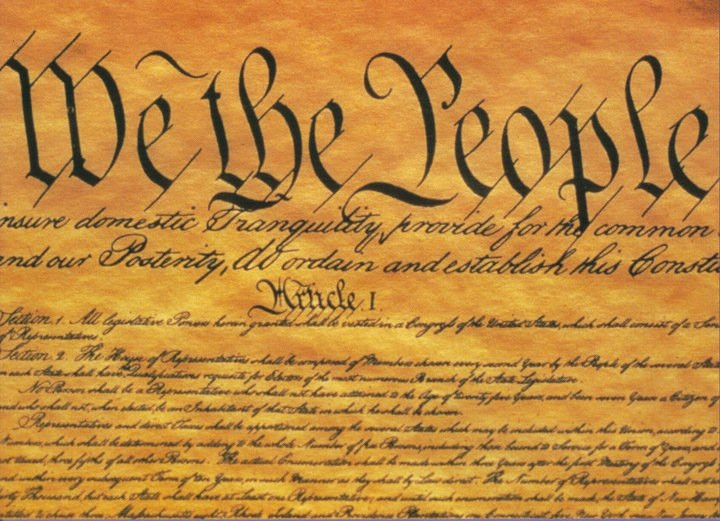 We the People
insure domestic Tranquility, provide for the common
and our Posterity, do ordain and establish this Consti
Article. I.
Section. 1. All legislative Powers herein granted shall be vested in a Congress of the United States, which shall consist of a Sen
of Representatives.
Section. 2. The House of Representatives shall be composed of Members chosen every second Year by the People of the several Stat
in each State shall have the Qualifications requisite for Electors of the most numerous Branch of the State Legislature.
No Person shall be a Representative who shall not have attained to the Age of twenty five Years, and been seven Years a Citizen of
and who shall not, when elected, be an Inhabitant of that State in which he shall be chosen.
Representatives and direct Taxes shall be apportioned among the several States which may be included within this Union, according to
Numbers, which shall be determined by adding to the whole Number of free Persons, including those bound to Service for a Term of Years, and
not taxed, three fifths of all other Persons. The actual Enumeration shall be made within three Years after the first Meeting of the Congress
and within every subsequent Term of ten Years, in such Manner as they shall by Law direct. The Number of Representatives shall not
thirty Thousand, but each State shall have at Least one Representative; and until such enumeration shall be made, the State of New Hamp
entitled to chuse three, Massachusetts eight, Rhode Island and Providence Plantations one, Connecticut five, New York six, New Jersey